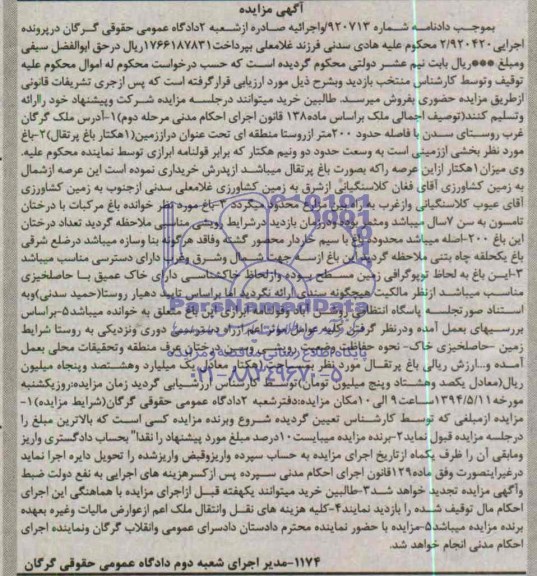 آگهی مزایده
بموجب دادنامه شماره ۹۲۰۷۱۳/واجرائیه صادره ازشعبه ۲دادگاه عمومی حقوقی گرگان درپرونده
اجرایی ۲/۹۲۰۴۲۰ محکوم علیه هادی سدنی فرزند غلامعلی بپرداخت ۱۷۶۶۱۸۷۸۳۱ریال درحق ابوالفضل سیفی
ومبلغ ***ریال بابت نیم عشر دولتی محکوم گردیده است که حسب درخواست محکوم له اموال محکوم علیه
توقیف وتوسط کارشناس منتخب بازدید وبشرح ذیل مورد ارزیابی قرارگرفته است که پس ازجری تشریفات قانونی
ازطریق مزایده حضوری بفروش میرسد. طالبین خرید میتوانند درجلسه مزایده شرکت وپیشنهاد خود راارائه
وتسلیم کنند(توصیف اجمالی ملک براساس ماده۱۳۸ قانون اجرای احکام مدنی مرحله دوم)۱-آدرس ملک گرگان
غرب روستای سدن با فاصله حدود ۲۰۰متر ازروستا منطقه ای تحت عنوان دراززمین(۱هکتار باغ پرتقال)۲-باغ
مورد نظر بخشی اززمینی است به وسعت حدود دو ونیم هکتار که برابر قولنامه ابرازی توسط نماینده محکوم علیه.
وی میزان ۱هکتار ازاین عرصه راکه بصورت باغ پرتقال میباشد ازپدرش خریداری نموده است این عرصه ازشمال
به زمین کشاورزی آقای فغان کلاسنگیانی ازشرق به زمین کشاورزی غلامعلی سدنی ازجنوب به زمین کشاورزی
آقای عیوب کلاسنگیانی وازغرب به محدود میگردد ۳-باغ مورد نظر خوانده باغ مرکبات با درختان
تامسون به سن ۷سال میباشد ودرزمان بازدید درشرایط رویشی ملاحظه گردید تعداد درختان
این باغ ۲۰۰-اصله میباشد محدوده باغ با سیم خاردار محصور گشته وفاقد هرگونه بنا وسازه میباشد درضلع شرقی
باغ یکحلقه چاه بتنی ملاحظه گردید این باغ ازسه جهت شمال وشرق وغرب دارای دسترسی مناسب میباشد
۳-این باغ به لحاظ توپوگرافی زمین مسطح بوده وازلحاظ خاکشناسی دارای خاک عمیق با حاصلخیزی
مناسب میباشد ازنظر مالکیت هیچگونه سندی ارائه نگردید اما براساس تایید دهیار روستا(حمید سدنی)وبه
استناد صورتجلسه پاسگاه انتظامی باغ متعلق به خوانده میباشد۵-براساس
بررسیهای بعمل آمده ودرنظر گرفتن کلیه عوامل موثر اعم ازراه دسترسی دوری ونزدیکی به روستا شرایط
زمین -حاصلخیزی خاک- نحوه حفاظت وضعیت رویشی وسن درختان عرف منطقه وتحقیقات محلی بعمل
آمده و..ارزش ریالی باغ پرتقال مورد نظر هکتار معادل یک میلیارد وهشتصد وپنجاه میلیون
ریال(معادل یکصد وهشتاد وپنج میلیون تومان)توسط کارشناس ارزشیابی گردید زمان مزایده:روزیکشنبه
مورخه ۱۳۹۴/۵/۱۱ساعت ۹ الی ۱۰مکان مزایده:دفترشعبه ۲دادگاه عمومی حقوقی گرگان(شرایط مزایده)۱-
مزایده ازمبلغی که توسط کارشناس تعیین گردیده شروع وبرنده مزایده کسی است که بالاترین مبلغ را
درجلسه مزایده قبول نماید۲-برنده مزایده میبایست۱۰درصد مبلغ مورد پیشنهاد را نقدا" بحساب دادگستری واریز
ومابقی آن را ظرف یکماه ازتاریخ اجرای مزایده به حساب سپرده واریزوقبض واریزشده را تحویل دایره اجرا نماید
درغیراینصورت وفق ماده۱۲۹قانون اجرای احکام مدنی سپرده پس ازکسرهزینه های اجرایی به نفع دولت ضبط
وآگهی مزایده تجدید خواهد شد۳-طالبین خرید میتوانند یکهفته قبل ازاجرای مزایده با هماهنگی این اجرای
احکام مال توقیف شده را بازدید نمایند۴-کلیه هزینه های نقل وانتقال ملک اعم ازعوارض مالیات وغیره بعهده
برنده مزایده میباشد۵-مزایده با حضور نماینده محترم دادستان دادسرای عمومی وانقلاب گرگان ونماینده اجرای
احکام مدنی انجام خواهد شد.
۱۱۷۴-مدیر اجرای شعبه دوم دادگاه عمومی حقوقی گرگان
ParsNamadData
پایگاه اطلاع رسانی مناقصه و مزایده
۰۲۱-۸۸۳۴۹۶۷۰-۵